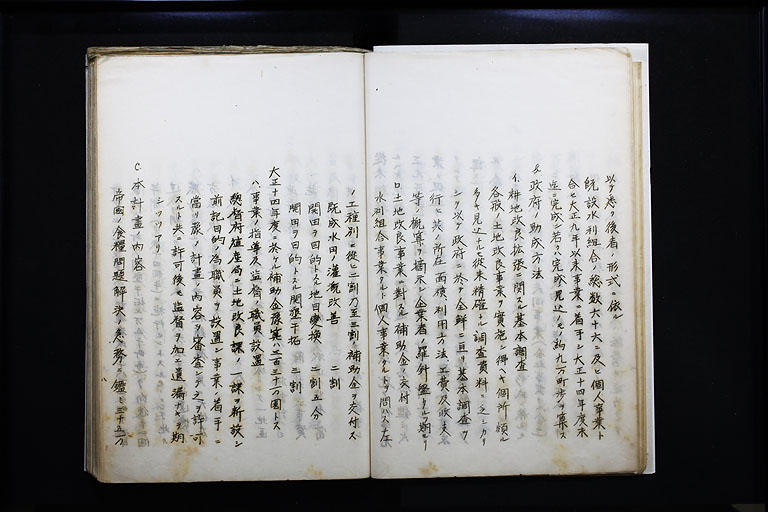 以テ悉ク後者ノ形式ニ依ル
既設水利組合ノ総数六十六ニ及ヒ個人事業ト
合セ大正九年以来事業ニ着手シ大正十四年度末
迄ニ完成シ若クハ完成見込ノモノ約九万町歩ヲ算ス
&政府ノ助成方法
イ、耕地改良拡張ニ関スル基本調査
各般ノ土地改良事業ヲ実施シ得ヘキ個所頗ル
多キ見込ナルモ従来精確ナル調査資料ニ乏シカリ
シヲ以テ政府ニ於テ全鮮ニ亘リ基本調査ヲ
行ヒ其ノ所在面積利用方法工費及收支
等ノ概算ヲ摘示シ企業者ノ羅針盤タルヲ期セリ
ロ土地改良事業ニ対スル補助金ノ交付
水利組合事業タルト個人事業タルトヲ問ハス左
ノ工種別ニ従ヒ二割乃至三割ノ補助金ヲ交付ス
既成水田ノ灌漑改善 二割
開田ヲ目的トスル地目変換 二割五分
開田ヲ目的トスル開墾干拓 三割
大正十四年度ニ於ケル補助金予算ハ三百三十一万圓トス
ハ、事業ノ指導及監督ノ職員設置
総督府殖産局ニ土地改良課ノ一課ヲ新設シ
前記目的ノ為職員ヲ設置シ事業ノ着手ニ
當リ最ノ計画ノ内容ヲ審査シテ之ヲ許可
スルト共ニ許可後モ監督ヲ加ヘ遺漏ナキヲ期
シツツアリ
C、本計畫ノ内容
帝國ノ食糧問題解決ノ急務ニ鑑ミ三十五万